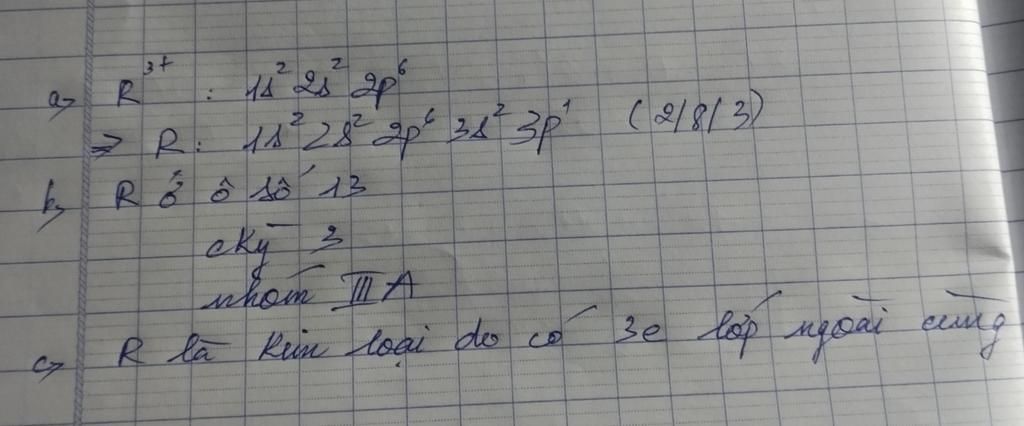 a, R³⁺ : 1s² 2s² 2p⁶
⇒ R: 1s² 2s² 2p⁶ 3s² 3p¹ (2/8/3)
b, R ở ô số 13
cKỳ 3
nhóm III A
c, R là kim loại do có 3e lớp ngoài cùng